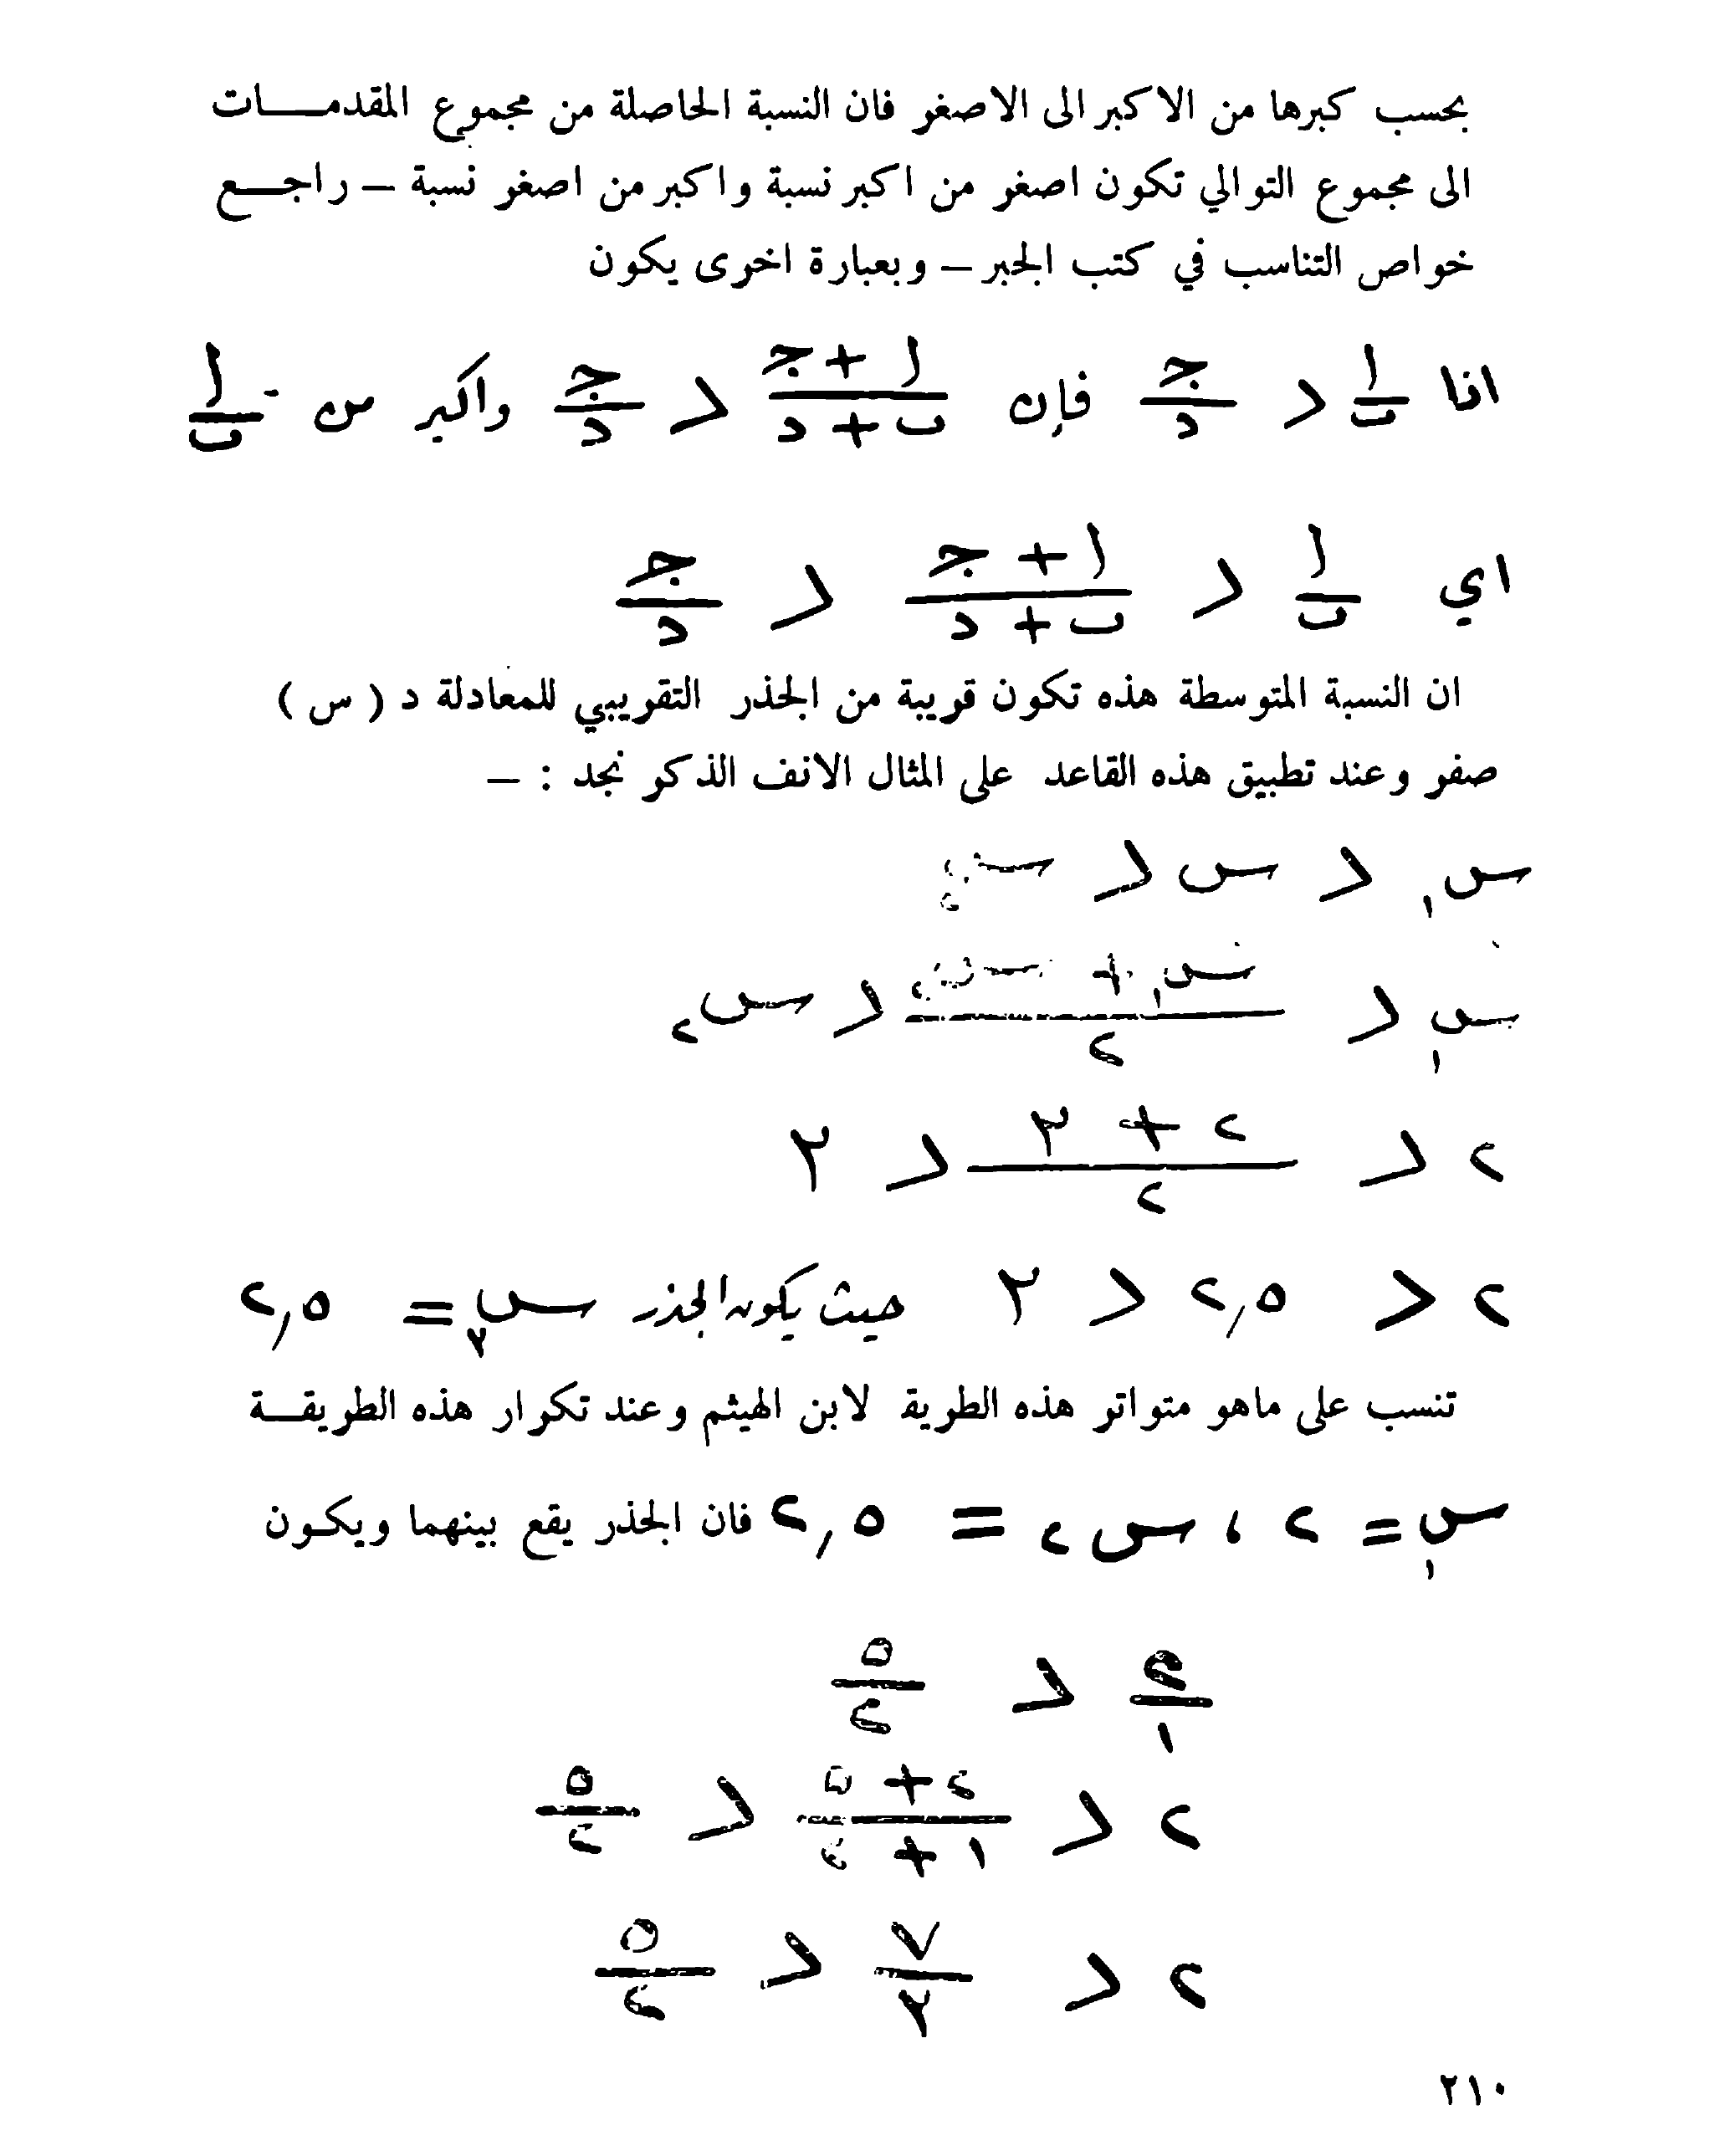 بحسب كبرها من الاكبر الى الاصغر فان النسبة الحاصلة من مجموع المقدمـــات
الى مجموع التوالي تكون اصغر من اكبر نسبة واكبر من اصغر نسبة – راجـــع
خواص التناسب في كتب الجبر – وبعبارة اخرى يكون
اذا ا/ب > ج/د فإن (ا + ج)/(ب + د) > ج/د واكبر من ا/ب
اي ا/ب > (ا + ج)/(ب + د) > ج/د
ان النسبة المتوسطة هذه تكون قريبة من الجذر التقريبي للمعادلة د ( س )
صفر وعند تطبيق هذه القاعد على المثال الانف الذكر نجد : –
س١ > س > س٢
س١ > (س١ + س٢)/٢ > س٢
٢ > (٢ + ٣)/٢ > ٣
٢ > ٢,٥ > ٣ حيث يكون الجذر س٣ = ٢,٥
تنسب على ماهو متواتر هذه الطريق لابن الهيثم وعند تكرار هذه الطريقـــة
س١ = ٢ ، س٢ = ٢,٥ فان الجذر يقع بينهما ويكـون
٢/١ > ٥/٢
٢ > (٢ + ٥)/(١ + ٢) > ٥/٢
٢ > ٧/٣ > ٥/٢
٢١٠